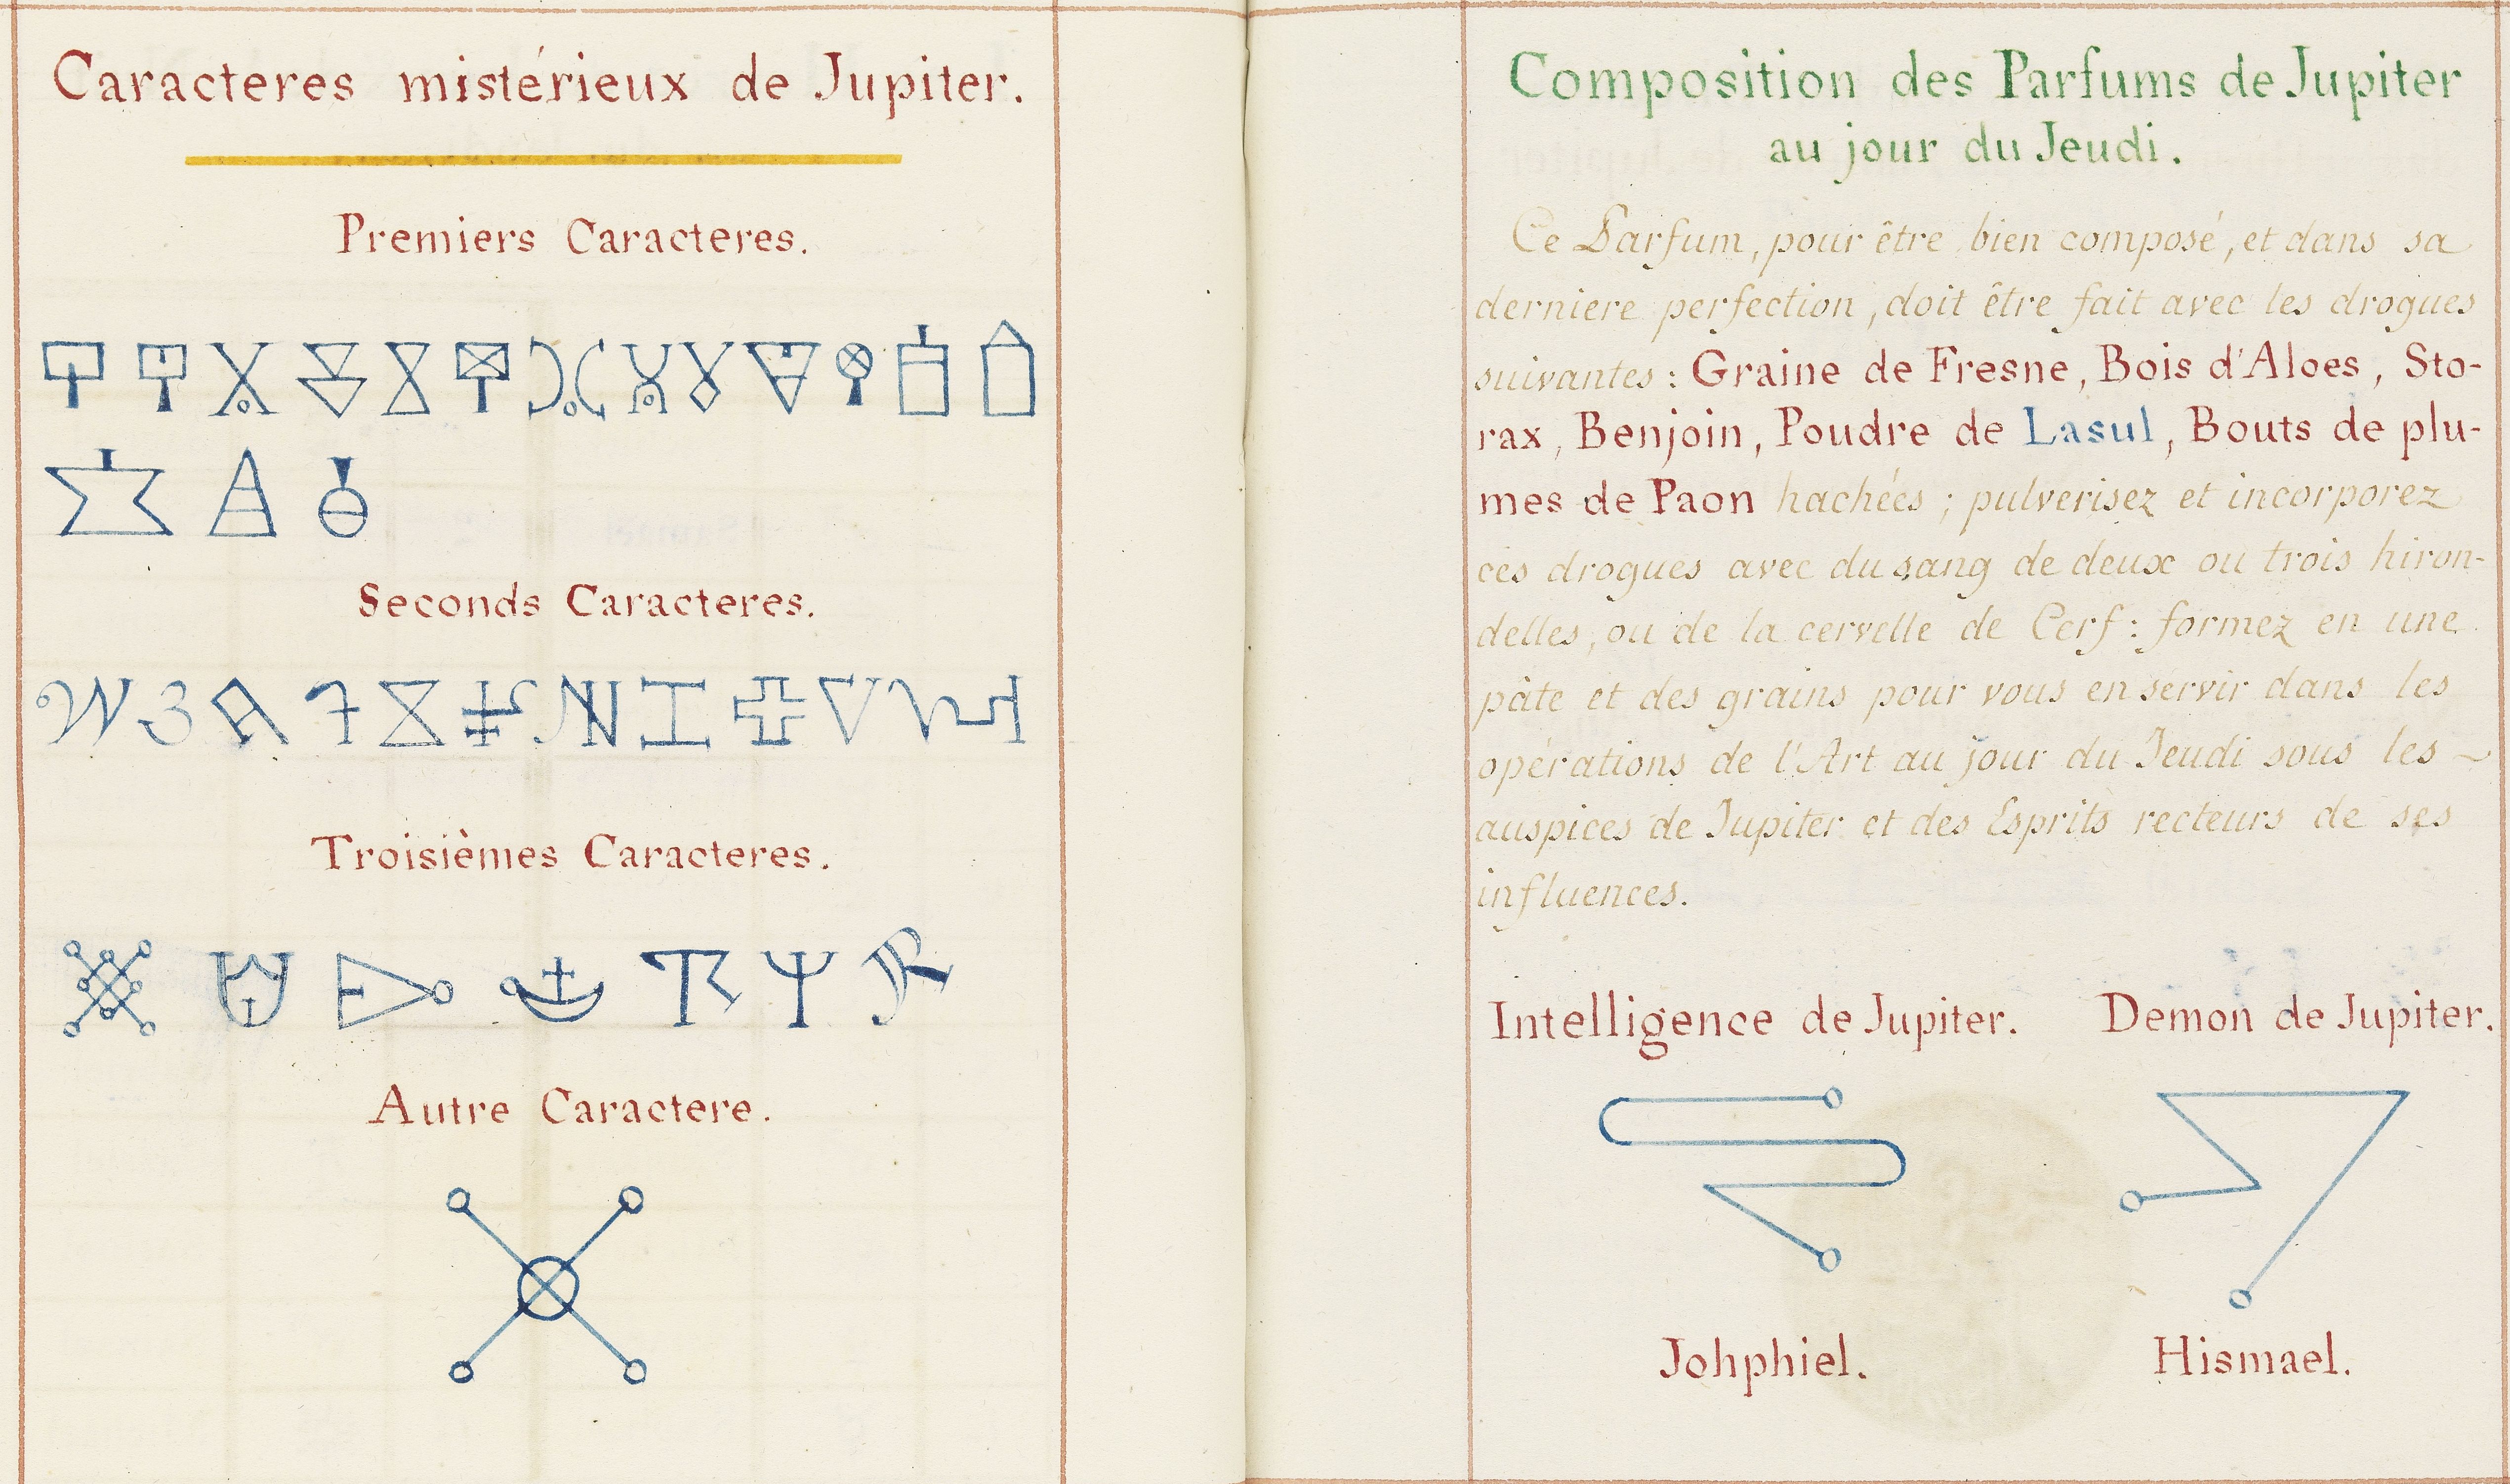 Caracteres mistérieux de Jupiter.
Premiers Caracteres.
Seconds Caracteres.
Troisièmes Caracteres.
Autre Caractere.
Composition des Parfums de Jupiter
au jour du Jeudi.
Ce Parfum, pour être bien composé, et dans sa
derniere perfection, doit être fait avec les drogues
suivantes : Graine de Fresne, Bois d'Aloes, Sto-
rax, Benjoin, Poudre de Lasul, Bouts de plu-
mes de Paon hachées ; pulverisez et incorporez
ces drogues avec du sang de deux ou trois hiron-
delles, ou de la cervelle de Cerf : formez en une
pâte et des grains pour vous en servir dans les
opérations de l'Art au jour du Jeudi sous les ~
auspices de Jupiter et des Esprits recteurs de ses
influences.
Intelligence de Jupiter. Demon de Jupiter.
Johphiel. Hismael.